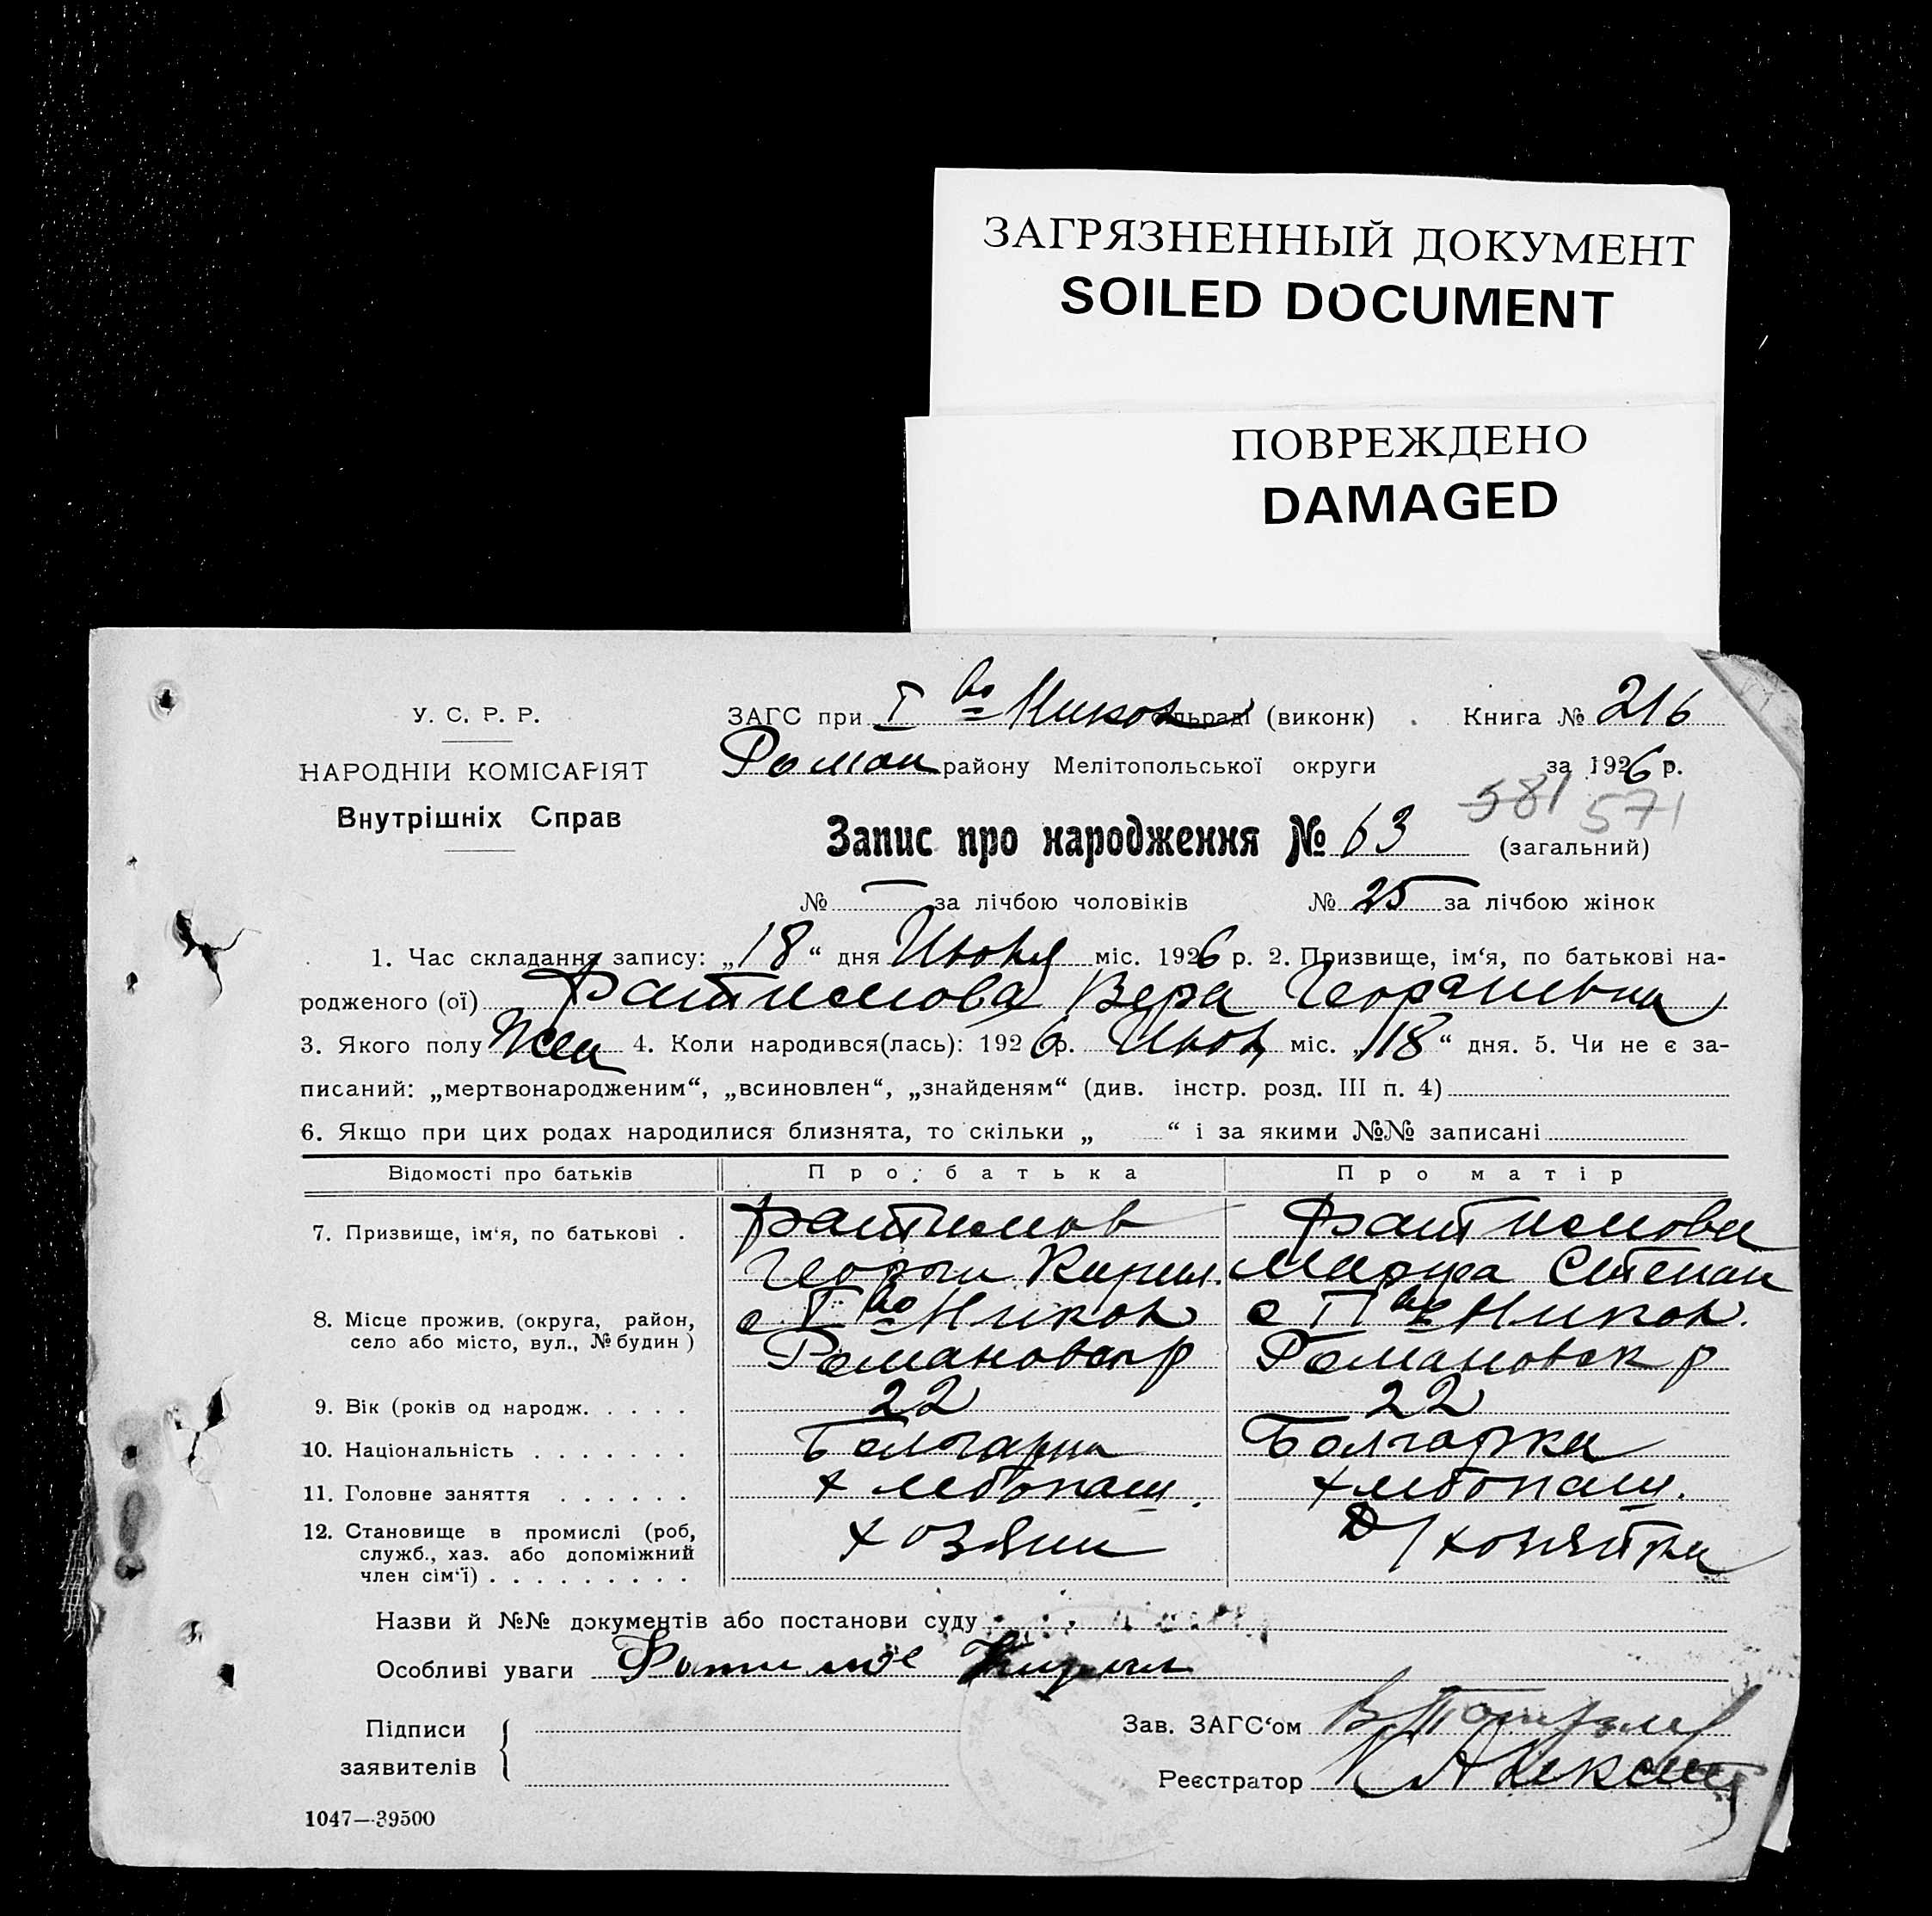 ЗАГРЯЗНЕННЫЙ ДОКУМЕНТ
SOILED DOCUMENT
ПОВРЕЖДЕНО
DAMAGED
У. С. Р. Р.
НАРОДНІЙ КОМІСАРІЯТ
Внутрішніх Справ
ЗАГС при І во Никол сільраді (виконк) Книга № 216
Роман району Мелітопольської округи за 1926 р.
581 571
Запис про народження № 63 (загальний)
№ — за лічбою чоловіків № 25 за лічбою жінок
1. Час складання запису: „18“ дня Июня міс. 1926 р. 2. Призвище, ім‘я, по батькові на-
родженого (ої) Фатимова Вера Георгиевна
3. Якого полу Жен 4. Коли народився(лась): 1926 р. Июня міс. „18“ дня. 5. Чи не є за-
писаний: „мертвонародженим“, „всиновлен“, „знайденям“ (див. інстр. розд. III п. 4)
6. Якщо при цих родах народилися близнята, то скільки „ “ і за якими №№ записані
Відомості про батьків Про батька Про матір
7. Призвище, ім‘я, по батькові . Фатимов Фатимова
Георгий Кирил. Марфа Степан
8. Місце прожив. (округа, район, с. І во Никол с. І во Никол.
село або місто, вул., № будин) Романовск р Романовск р
9. Вік (років од народж. . . . . 22 22
10. Національність . . . . . . . Болгарин Болгарка
11. Головне заняття . . . . . . хлебопаш. хлебопаш.
12. Становище в промислі (роб, хозяин Д/хозяйка
служб., хаз. або допоміжний
член сім‘ї) . . . . . . . . .
Назви й №№ документів або постанови суду
Особливі уваги
Підписи
заявителів
Зав. ЗАГС‘ом
Реєстратор
1047—39500